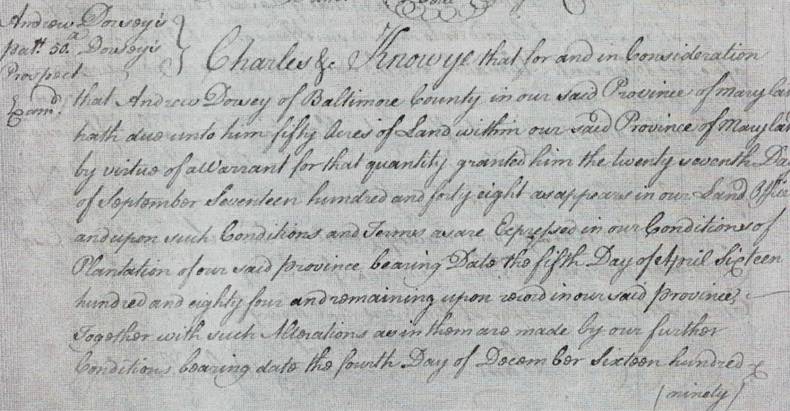 Andrew Dorsey's
Patt. 50.a Dorsey's
Prospect
Exam.d
Charles &c Know ye that for and in Consideration
that Andrew Dorsey of Baltimore County in our said Province of Marylan
hath due unto him fifty Acres of Land within our said Province of Maryla
by virtue of a Warrant for that quantity granted him the twenty seventh Da
of September Seventeen hundred and forty eight as appears in our Land Office
and upon such Conditions and Terms as are Expressed in our Conditions of
Plantation of our said province bearing Date the fifth Day of April Sixteen
hundred and eighty four and remaining upon record in our said province
Together with such Alterations as in them are made by our further
Conditions bearing date the fourth Day of December Sixteen hundred &
(ninety)